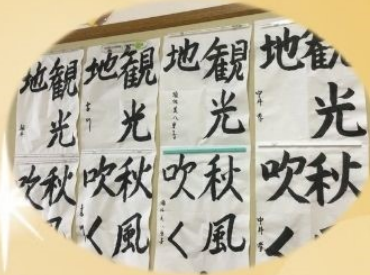 観光
地
中井
観光
地
観光
地
観光
地
秋
吹く
中井
秋風
吹く
秋風
吹く
秋風
吹く